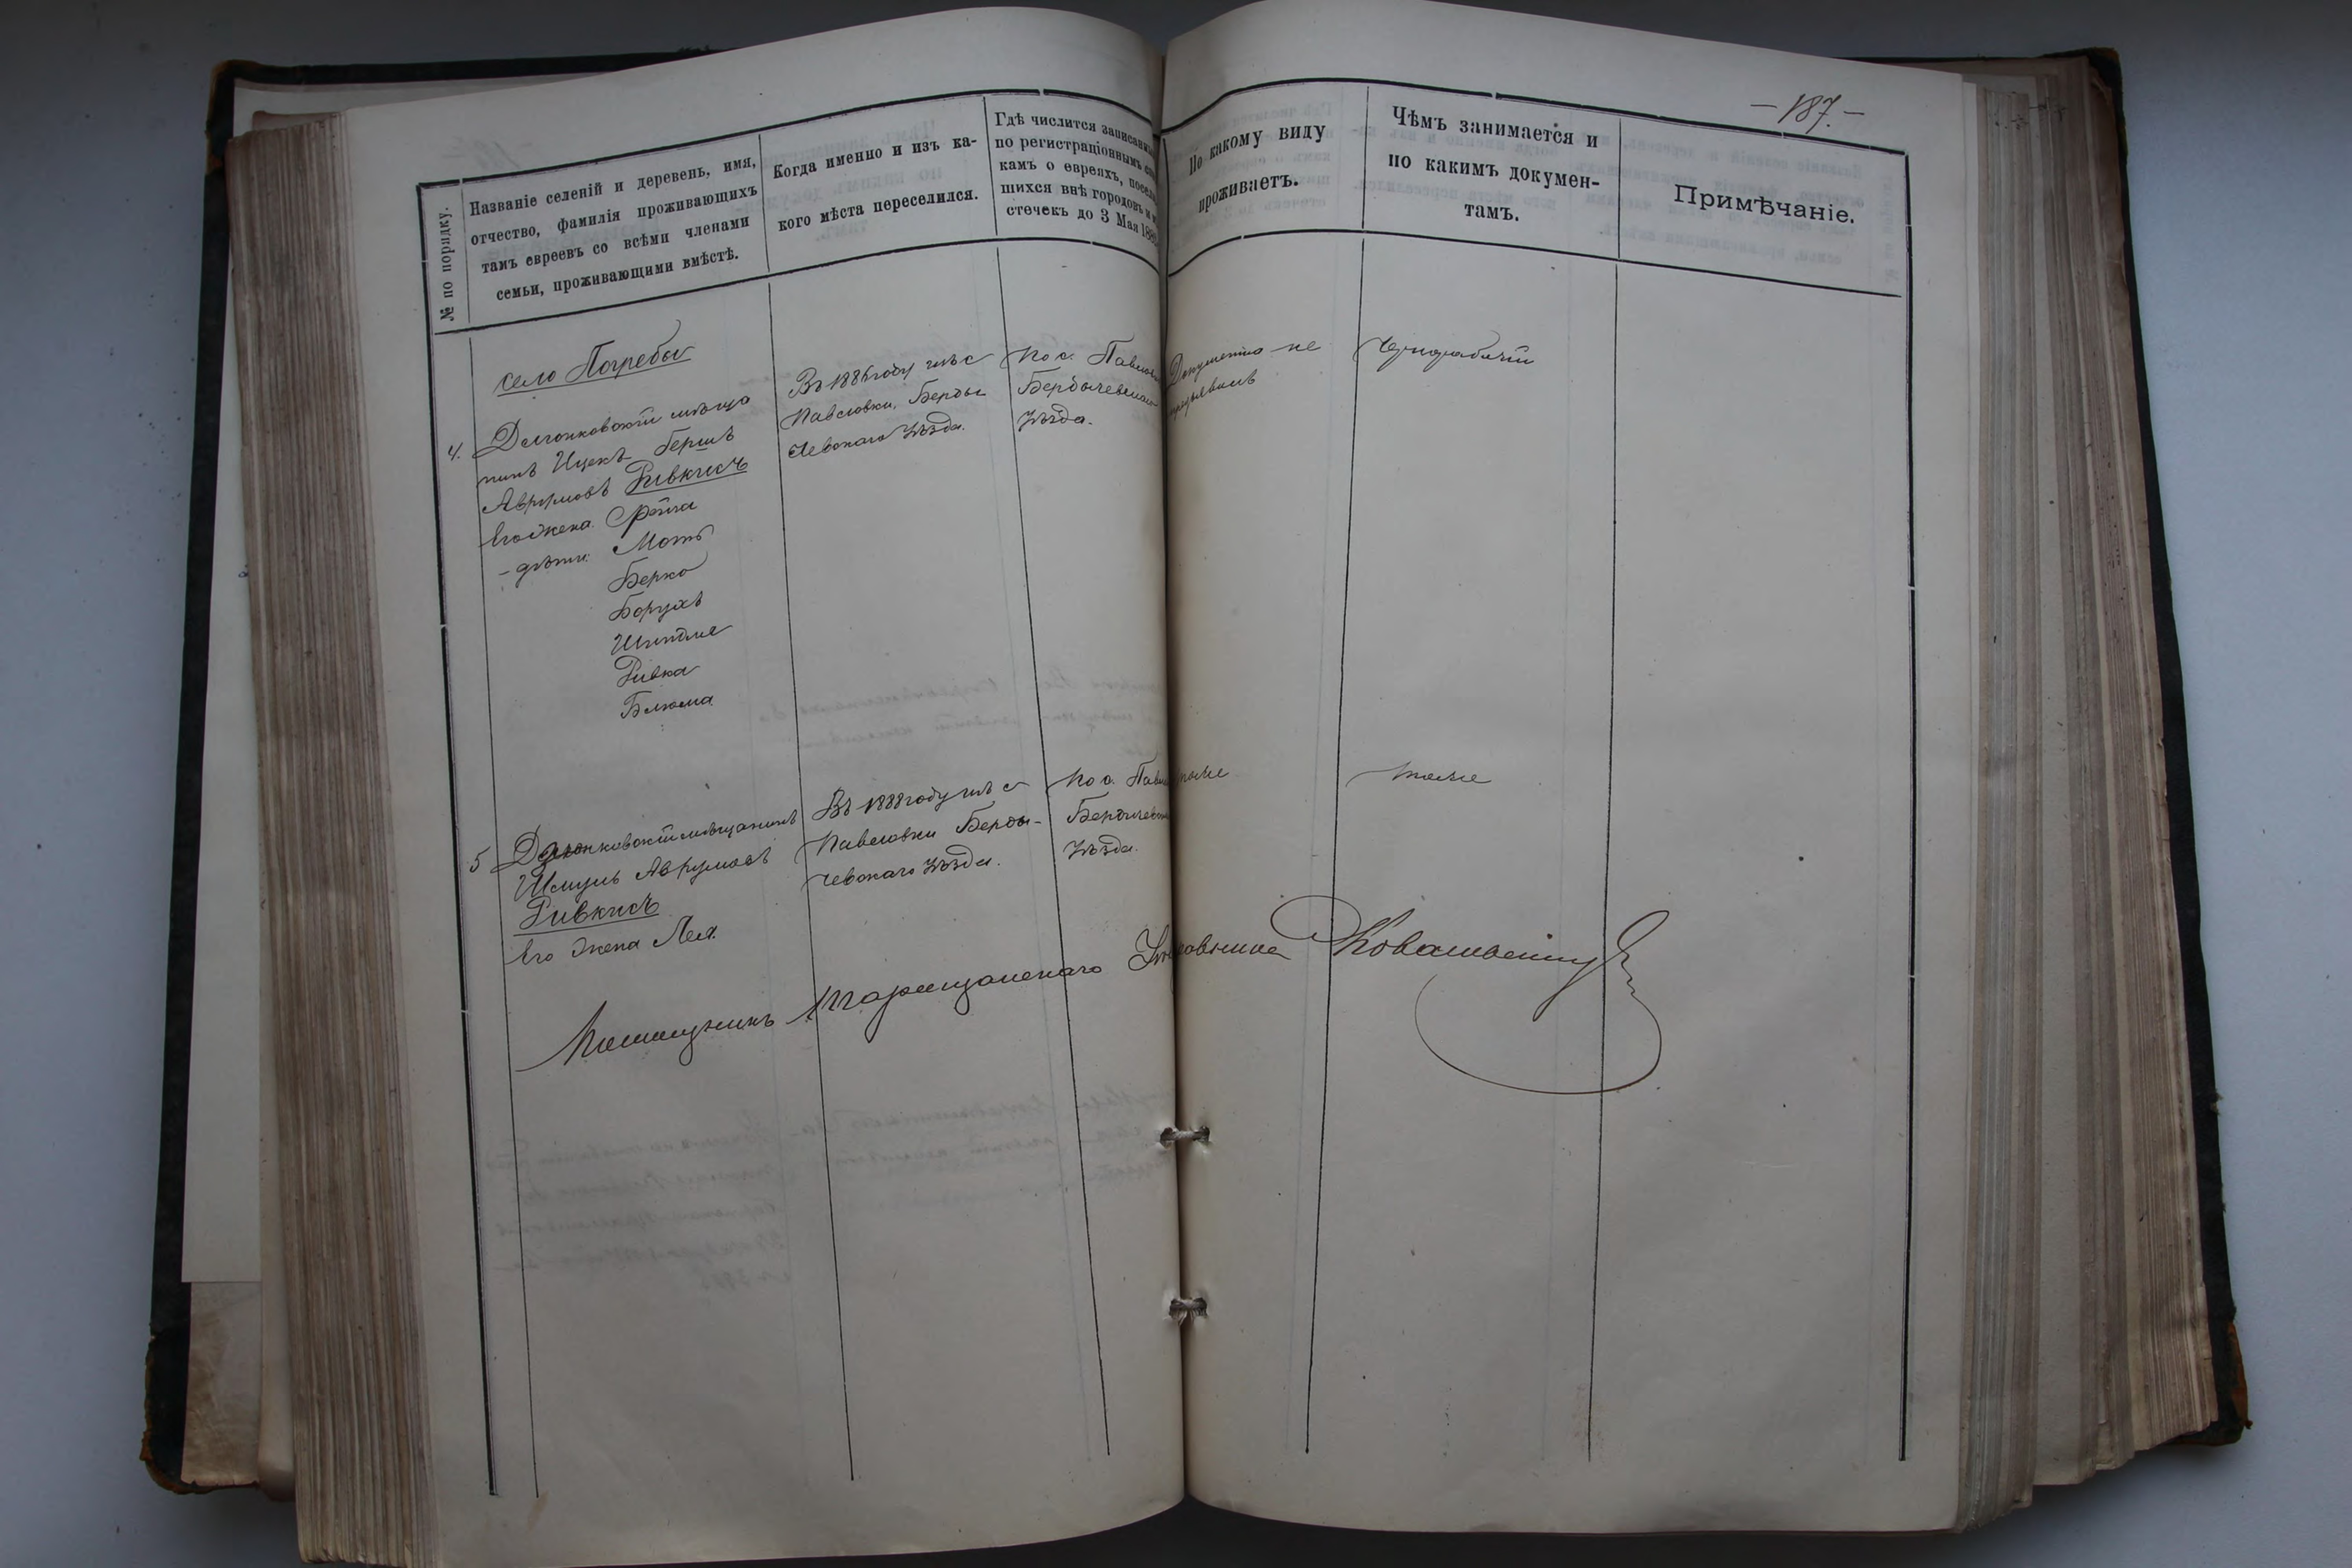 — 187. —
№ по порядку.
Названіе селеній и деревень, имя,
отчество, фамилія проживающихъ
тамъ евреевъ со всѣми членами
семьи, проживающими вмѣстѣ.
Когда именно и изъ ка-
кого мѣста переселился.
Гдѣ числится
по регистраціоннымъ
камъ о евреяхъ,
шихся внѣ городовъ и
стечекъ до 3 Мая
По какому виду
проживаетъ.
Чѣмъ занимается и
по какимъ докумен-
тамъ.
Примѣчаніе.
село Погребы
4.
мѣща
нинъ Ицекъ Бершъ
Аврумовъ Ривкисъ
Его жена
- дѣти: Мотъ
Берко
Борухъ
Ривка
Блюма
Въ 1886 году изъ с
Павловки, Берды
чевскаго Уѣзда.
По с.
Уѣзда.
Документа не
Чернорабочій
5
мѣщанинъ
Шмуль Аврумовъ
Ривкисъ
Его жена Лея.
Въ 1888 году изъ с
Павловки Берды-
чевскаго Уѣзда.
По с.
Уѣзда.
тоже
тоже
Помощникъ Таращанскаго